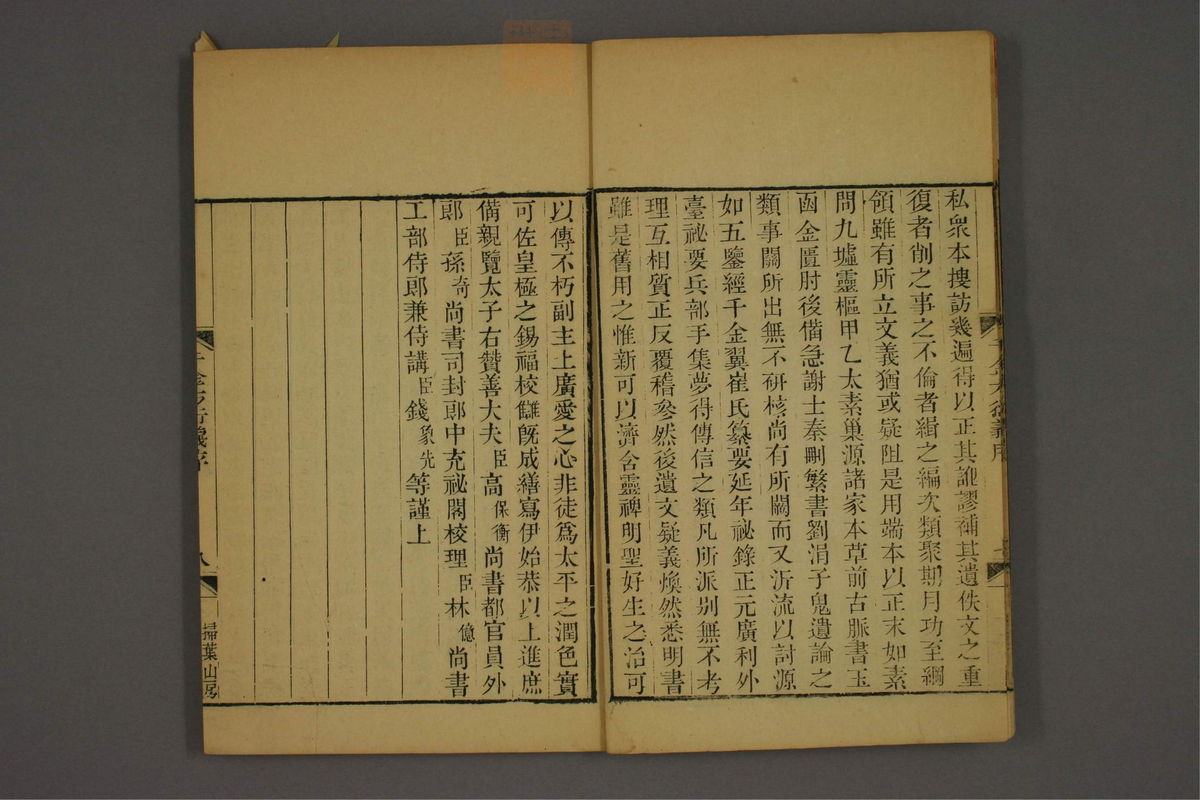 私衆本搜訪幾遍得以正其訛謬補其遺佚文之重
復者削之事之不倫者緝之編次類聚期月功至綱
領雖有所立文義猶或疑阻是用端本以正末如素
問九墟靈樞甲乙太素巢源諸家本草前古脈書玉
函金匱肘後備急謝士秦刪繁書劉涓子鬼遺論之
類事關所出無不研核尚有所闕而又泝流以討源
如五鑒經千金翼崔氏纂要延年祕錄正元廣利外
臺祕要兵部手集夢得傳信之類凡所派別無不考
理互相質正反覆稽參然後遺文疑義煥然悉明書
雖是舊用之惟新可以濟含靈裨明聖好生之治可
以傳不朽副主上廣愛之心非徒爲太平之潤色實
可佐皇極之錫福校讎旣成繕寫伊始恭以上進庶
備親覽太子右贊善大夫臣高保衡尚書都官員外
郎臣孫奇尚書司封郎中充祕閣校理臣林億尚書
工部侍郎兼侍講臣錢象先等謹上
千金方衍義序
八
掃葉山房